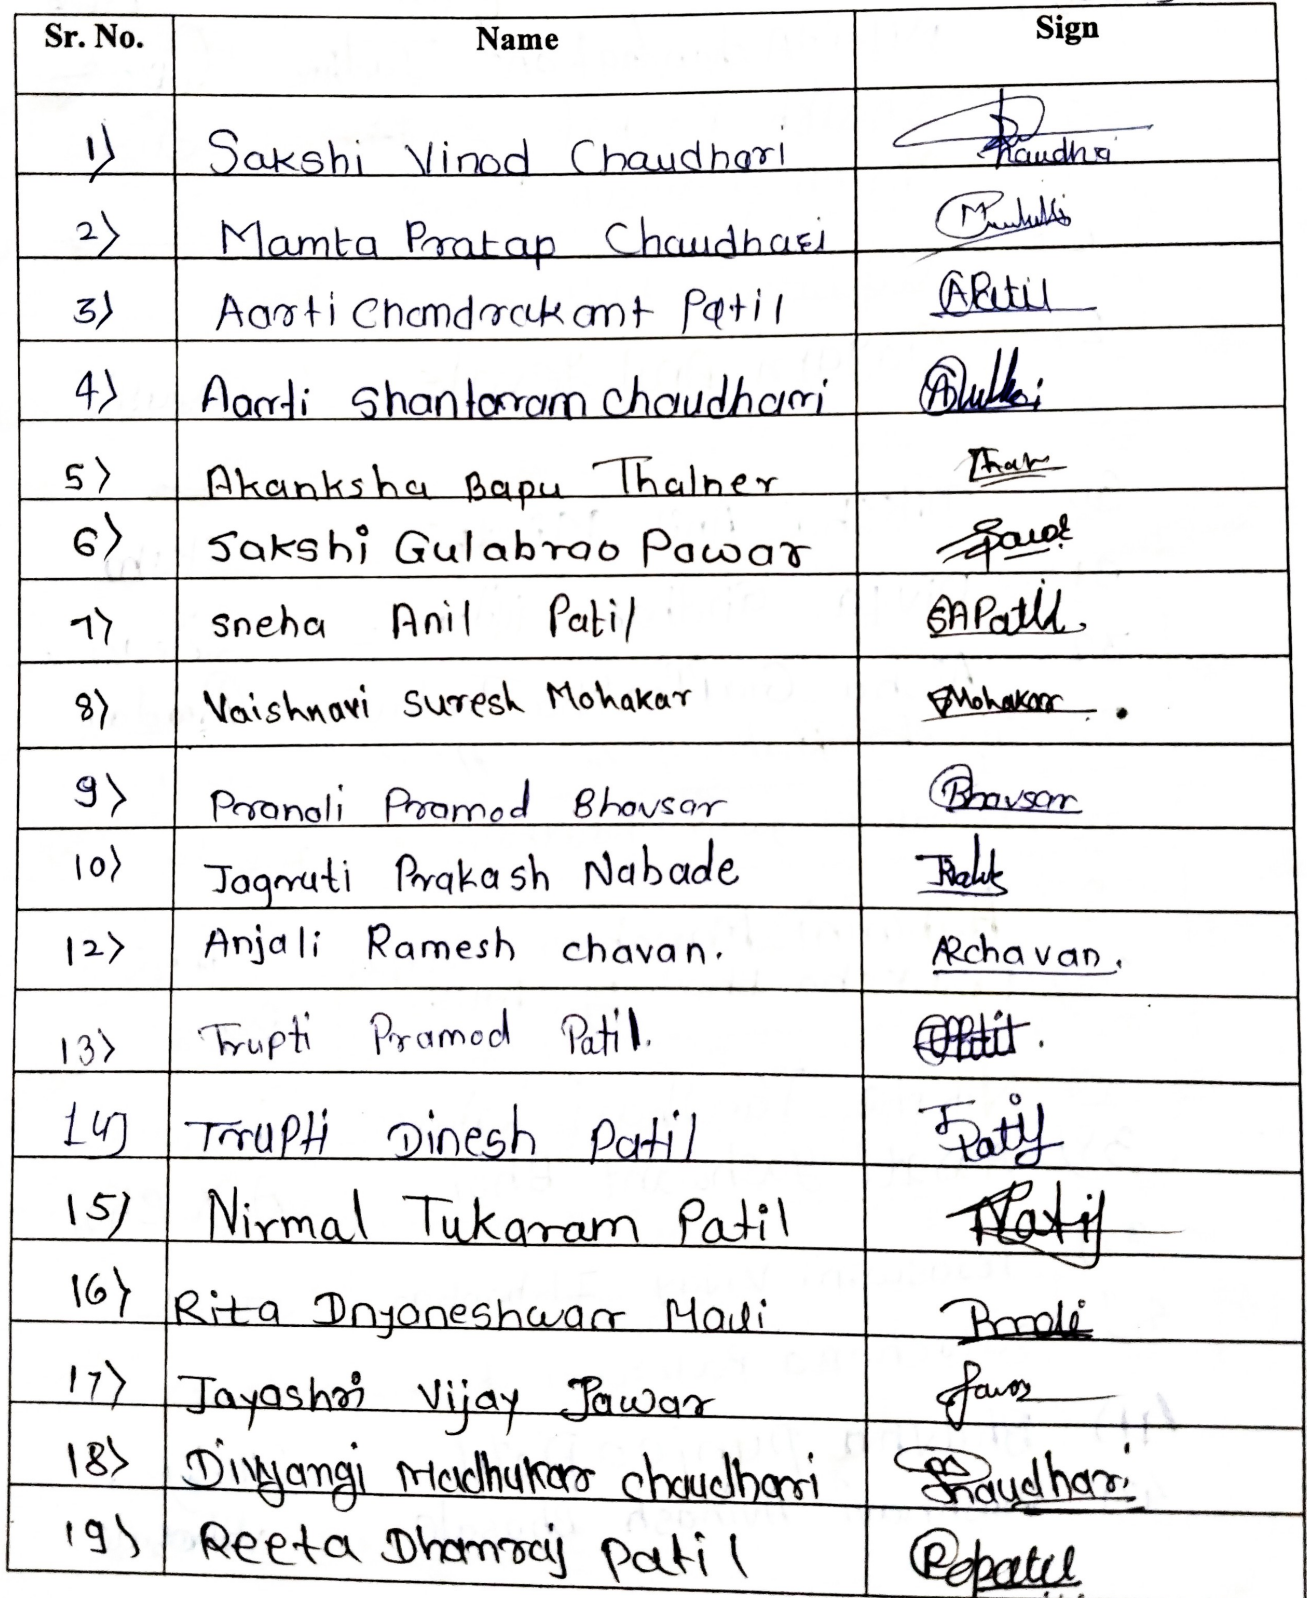 Sr. No. Name Sign
1) Sakshi Vinod Chaudhari Chaudhri
2) Mamta Pratap Chaudhari
3) Aarti Chandrakant Patil APatil
4) Aarti Shantaram Chaudhari
5) Akanksha Bapu Thalner Thar
6) Sakshi Gulabrao Pawar
7) Sneha Anil Patil SAPatil.
8) Vaishnavi Suresh Mohakar VMohakar.
9) Pranali Pramod Bhavsar Bhavsar
10) Jagruti Prakash Nabade
12) Anjali Ramesh chavan. ARchavan.
13) Trupti Pramod Patil. TPatil.
14) Trupti Dinesh Patil TPatil
15) Nirmal Tukaram Patil NPatil
16) Rita Dnyaneshwar Mali
17) Jayashri Vijay Pawar
18) Divyangi Madhukar chaudhari Chaudhari
19) Reeta Dhanraj Patil RDpatil